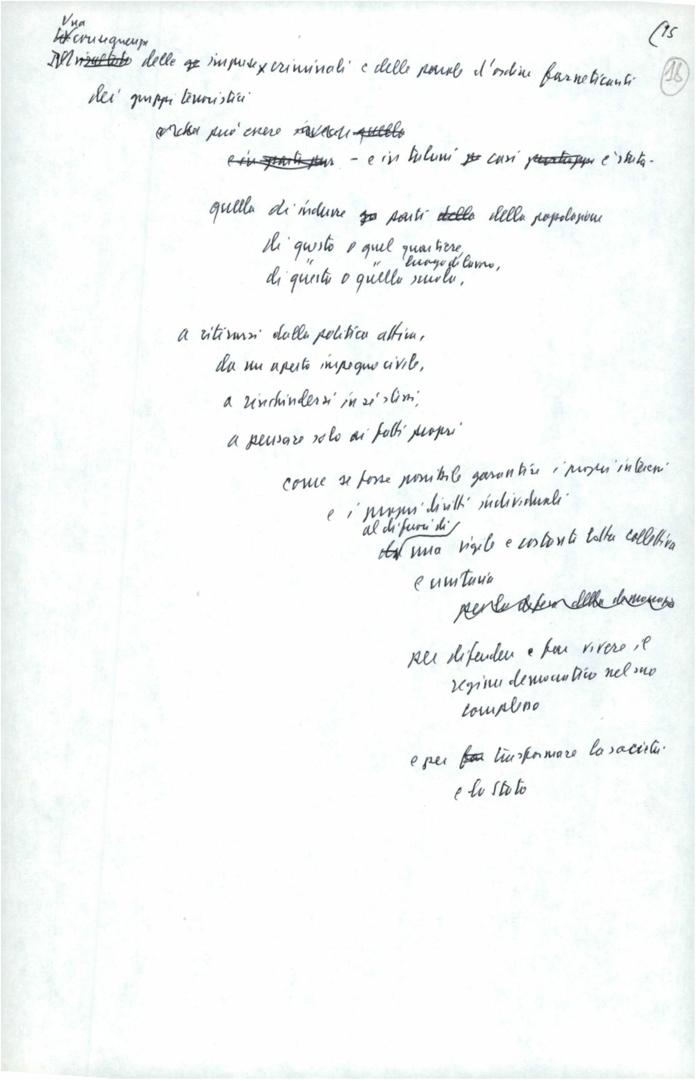 (15
18
Una
conseguenza
delle imprese criminali e delle parole d'ordine farneticanti
dei gruppi terroristici
può essere quella
e in parti pur – e in taluni casi purtroppo è stata –
quella di indurre parti della della popolazione
di questo o quel quartiere,
luogo di lavoro,
di questa o quella scuola,
a ritirarsi dalla politica attiva,
da un aperto impegno civile,
a rinchiudersi in se stessi,
a pensare solo ai fatti propri
come se fosse possibile garantire i propri interessi
e i propri diritti individuali
al di fuori di
una vigile e costante lotta collettiva
e unitaria
per la difesa della democrazia
per difendere e far vivere il
regime democratico nel suo
complesso
e per far trasformare la società
e lo Stato